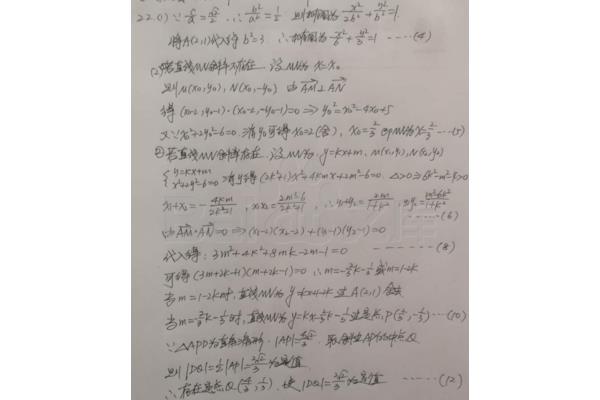 22.(1) ∵ c/a = √2/2 ∴ b²/a² = 1/2 则椭圆为 x²/2b² + y²/b² = 1.
将A(2,1)代入得 b²=3 ∴椭圆为 x²/6 + y²/3 = 1 ……(4)
(2)①若直线MN斜率不存在, 设MN为 x=x₀
则M(x₀,y₀), N(x₀,-y₀) 由 AM⊥AN
得 (x₀-2,y₀-1)·(x₀-2,-y₀-1)=0 ⇒ y₀²=x₀²-4x₀+5
又∵x₀²+2y₀²-6=0 消y₀可得 x₀=2(舍), x₀=2/3 即MN为x=2/3 …(5)
②若直线MN斜率存在, 设MN为 y=kx+m, M(x₁,y₁), N(x₂,y₂)
{y=kx+m x²+2y²-6=0 消y得 (2k²+1)x²+4kmx+2m²-6=0.
x₁+x₂=-4km/2k²+1, x₁x₂=2m²-6/2k²+1, ∴
……(6)
由AM·AN=0 ⇒ (x₁-2)(x₂-2)+(y₁-1)(y₂-1)=0
代入得: 3m²+4k²+8mk-2m-1=0 ……(8)
可得 (3m+2k+1)(m+2k-1)=0 ∴m=-2/3k-1/3 或m=1-2k
当m=1-2k时, 直线MN为 y=kx+1-2k 过A(2,1) 舍去
当m=-2/3k-1/3时, 直线MN为 y=kx-2/3k-1/3 过定点P(2/3,-1/3)…(10)
∵△APD为直角三角形, |AP|=4√2/3 取斜边AP的中点Q
则 |DQ|=1/2|AP|=2√2/3 为定值
∴存在定点Q(4/3,1/3), 使|DQ|=2√2/3为定值 ……(12)